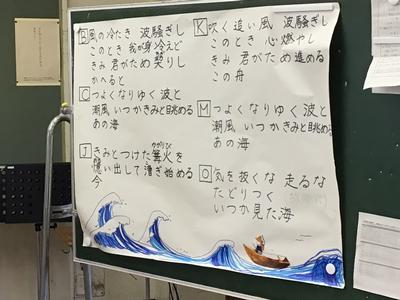 B 風の冷たき 波騒ぎし
このとき 我が身 冷えど
きみ 君がため 契りし
かへると
C つよくなりゆく 波と
潮風 いつかきみと眺める
あの海
J きみとつけた篝火を
かがりび
憶い出して漕ぎ始める
今
K 吹く 追い風 波騒ぎし
このとき 心 燃やし
きみ 君がため 進める
この舟
M つよくなりゆく 波と
潮風 いつかきみと眺める
あの海
O 気を抜くな 走るな
たどりつく
いつか見た海